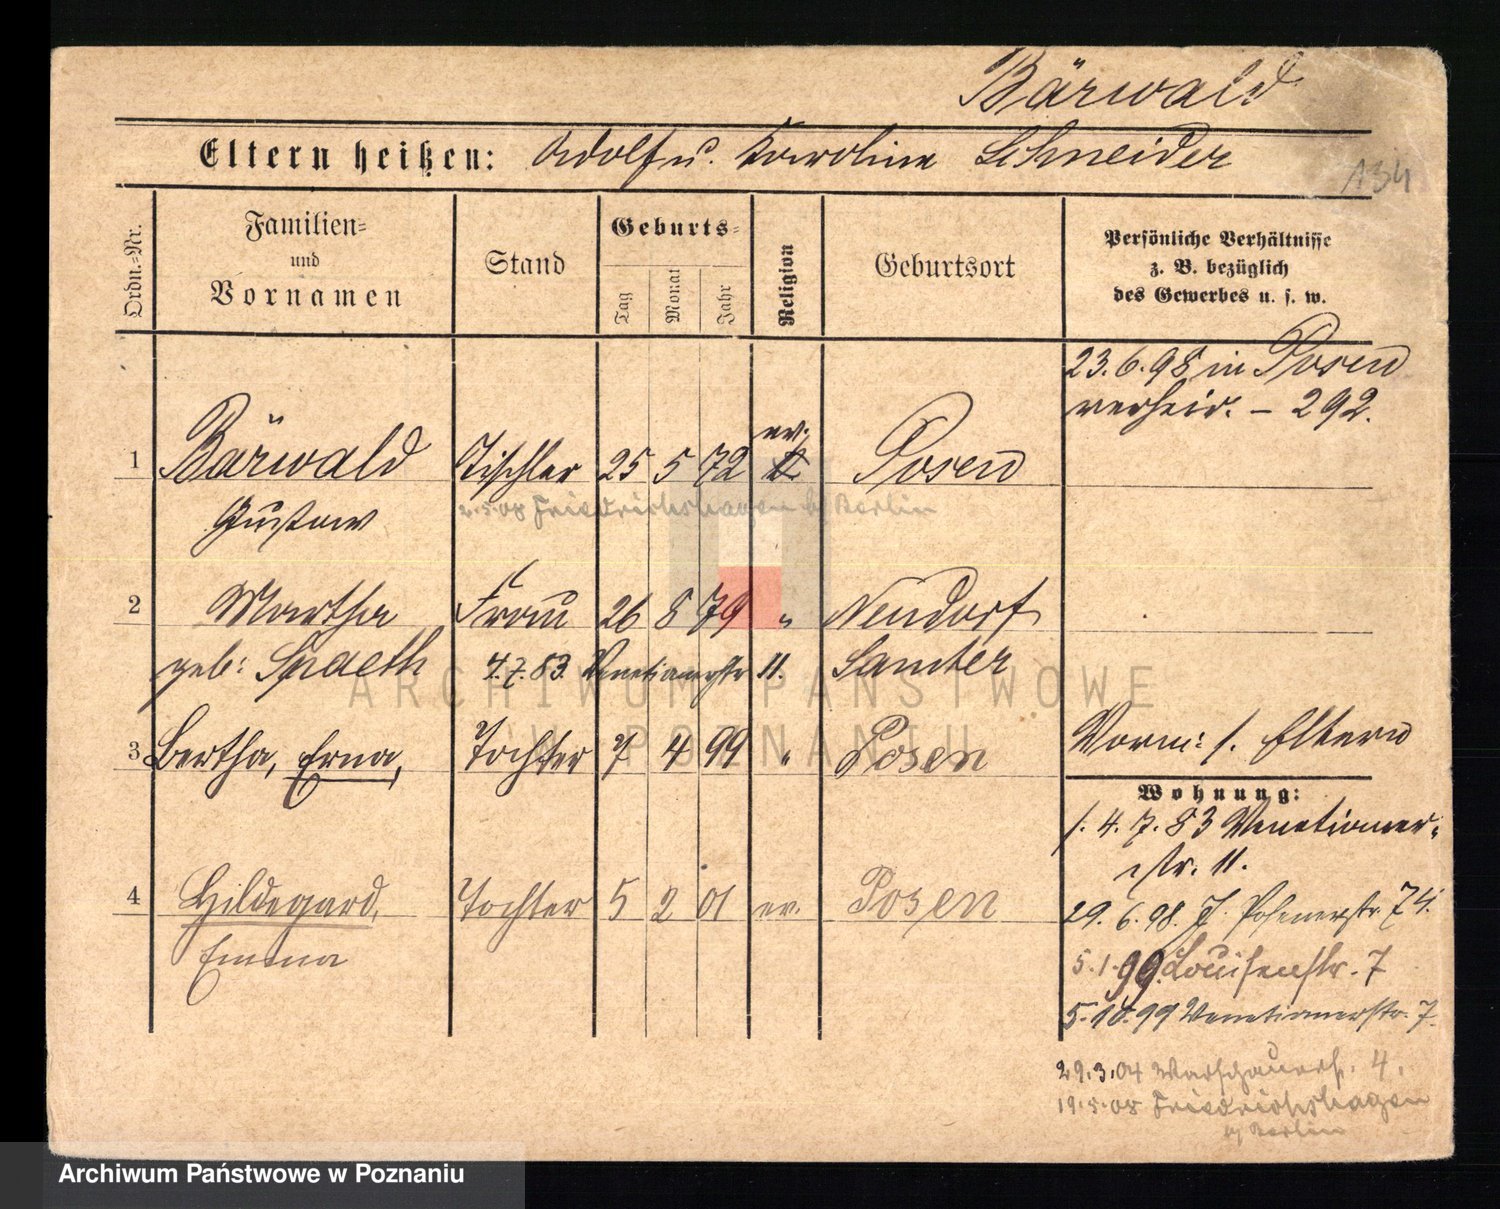 Bärwald
Eltern heißen: Adolf u. Karoline Schneider
134
Ordn.-Nr.
Familien-
und
Vornamen
Stand
Geburts-
Tag
Monat
Jahr
Religion
Geburtsort
Persönliche Verhältnisse
z. B. bezüglich
des Gewerbes u. s. w.
23.6.98 in Posen
verheir. – 292.
ev.
1 Bärwald Tischler 25 5 72 Posen
2.5.08 Friedrichshagen b/ Berlin
Gustav
2 Martha Frau 26 8 79 " Neudorf
geb: Spaeth 4.7.83. Venetianerstr 11. Samter
3 Bertha, Erna, Tochter 7 4 99 " Posen
Vorm: s. Eltern
Wohnung:
1. 4. 7. 83 Venetianer-
str. 11.
4 Hildegard, Tochter 5 2 01 ev. Posen
Emma
29. 6. 98. J. Posenerstr. 74.
5.1.99. Louisenstr. 7
5.10.99 Venetianerstr. 7.
29.3.04 Warschauerstr. 4.
19.5.08 Friedrichshagen
b/ Berlin
ARCHIWUM PAŃSTWOWE
W POZNANIU
Archiwum Państwowe w Poznaniu